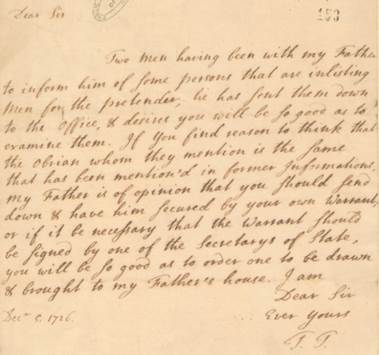 Dear Sir
153
Two Men having been with my Father
to inform him of some persons that are inlisting
Men for the pretender, he has sent them down
to the Office, & desires you will be so good as to
examine them. If you find reason to think that
the Obrian whom they mention is the same
that has been mention'd in former Informations,
my Father is of opinion that you should send
down & have him secured by your own Warrant,
or if it be necessary that the Warrant should
be signed by one of the Secretarys of State,
you will be so good as to order one to be drawn
& brought to my Father's house. I am
Dear Sir
Ever yours
T. T.
Decr 1726.